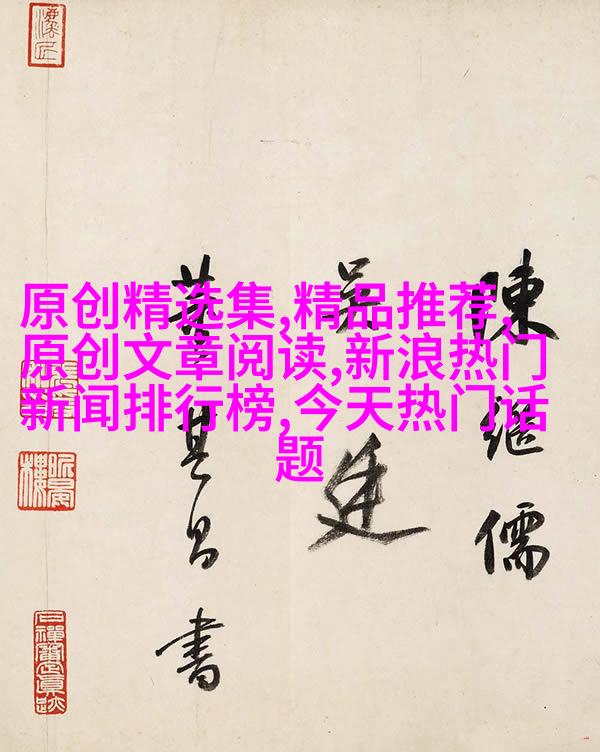 原创精选集,精品推荐,
原创文章阅读,新浪热门
新闻排行榜,今天热门话
题
陳繼儒
吳廷
董其昌書